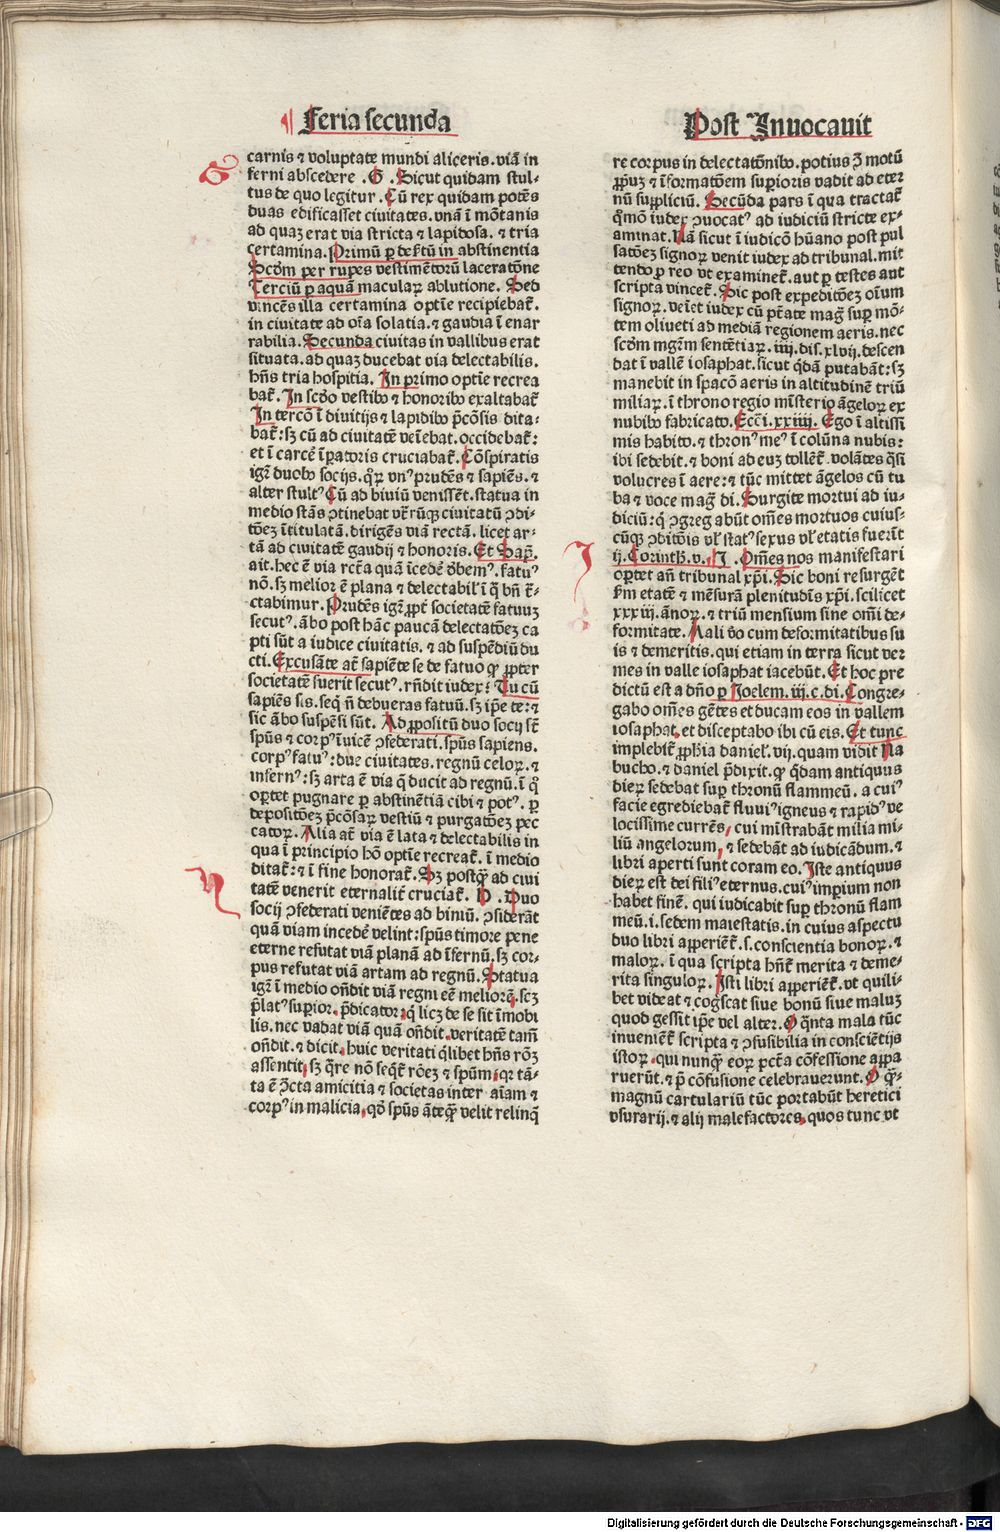 ¶ Feria secunda
carnis ⁊ voluptate mundi aliceris. viā in
ferni abscedere . G . Sicut quidam stul⸗
tus de quo legitur . Cū rex quidam potēs
duas edificasset ciuitates. vnā ī mōtanis
ad quaꝫ erat via stricta ⁊ lapidosa. ⁊ tria
certamina. Primū ꝑ defctū in abstinentia
Scōm per rupes vestimētorū laceratōne
Terciū ꝑ aquā maculaꝝ ablutione. Sed
vincēs illa certamina optīe recipiebat̄.
in ciuitate ad oīa solatia. ⁊ gaudia ī enar
rabilia. Secunda ciuitas in vallibus erat
situata. ad quaꝫ ducebat via delectabilis.
hn̄s tria hospitia. In primo optīe recrea
bat̄. In scōo vestibꝰ ⁊ honoribꝰ exaltabat̄
In tercō ī diuitijs ⁊ lapidibꝰ p̄cōsis dita⸗
bat̄: sꝫ cū ad ciuitatē veīebat. occidebat̄:
et ī carcē īꝑatoris cruciabat̄. Cōspiratis
igr̄ duobꝰ socijs. qͦꝝ vnꝰ prudēs ⁊ sapiēs. ⁊
alter stultꝰ Cū ad biuiū venissēt. statua in
medio stās ꝯtinebat vtr̄rūqꝫ ciuitatū ꝯdi⸗
tōeꝫ ītitulatā. dirigēs viā rectā. licet ar⸗
tā ad ciuitatē gaudij ⁊ honoris. Et Sap̄.
ait. hec ē via rcta quā īcedē dꝫbemꝰ. fatuꝰ
nō. sꝫ melior ē plana ⁊ delectabil̓ ī q̄ bn̄ r̄⸗
ctabimur. Prudēs igr̄ ꝓpt̄ societatē fatuuꝫ
secutꝰ. ābo post hāc paucā delectatōeꝫ ca
pti sūt a iudice ciuitatis. ⁊ ad suspēdiū du
cti. Excusāte at̄ sapiēte se de fatuo qꝫ ꝓpter
societatē fuerit secutꝰ. rn̄dit iudex: Tu cū
sapiēs sis. seq̄ n̄ debueras fatuū. sꝫ ip̄e te: ⁊
sic ābo suspēsi sūt. Ad ꝓpositū duo socij st̄
spūs ⁊ corpꝰ īuicē ꝯfederati. spūs sapiens.
corpꝰ fatuꝰ: due ciuitates. regnū celoꝝ. ⁊
infernꝰ: sꝫ arta ē via q̄ ducit ad regnū. ī qͦ
oꝑtet pugnare ꝑ abstinētiā cibi ⁊ potꝰ. ꝑ
depositōeꝫ p̄cōsaꝝ vestiū ⁊ purgatōeꝫ pec
catoꝝ. Alia at̄ via ē lata ⁊ delectabilis in
qua ī principio hō optīe recreat̄. ī medio
ditat̄: ⁊ ī fine honorat̄. Sꝫ postqꝫ ad ciui
tatē venerit eternalit̄ cruciat̄. H . Duo
socij ꝯfederati veniētes ad biuiū. ꝯsiderāt
quā viam incedē velint: spūs timore pene
eterne refutat viā planā ad īfernū. sꝫ cor⸗
pus refutat viā artam ad regnū. Statua
igr̄ ī medio on̄dit viā regni eē meliorē. scꝫ
p̄latꝰ suꝑior. p̄dicator: q̄ licꝫ de se sit īmobi
lis. nec vadat viā quā on̄dit. veritatē tam̄
on̄dit. ⁊ dicit. huic veritati q̄libet hn̄s rōꝫ
assentit. sꝫ q̄re nō seqt̄ rōeꝫ ⁊ spūm. qꝛ tā⸗
ta ē ꝯcta amicitia ⁊ societas inter aīam ⁊
corpꝰ in malicia. qd̓ spūs āteqꝫ velit relinq̄

Post Inuocauit
re corpus in delectatōnibꝰ. potius ꝫ motū
ꝓpuꝫ ⁊ īformatōem suꝑioris vadit ad eter
nū suppliciū. Secūda pars ī qua tractat̄
qͦmō iudex ꝯuocatꝰ ad iudiciū stricte ex⸗
aminat. Nā sicut ī iudicō hūano post pul
satōeꝫ signoꝝ venit iudex ad tribunal. mit
tendo ꝓ reo vt examinet̄. aut ꝑ testes aut
scripta vincet̄. Sic post expeditōeꝫ oīum
signoꝝ. veīet iudex cū pt̄ate maḡ suꝑ mō⸗
tem oliueti ad mediā regionem aeris. nec
scōm mgr̄m sentētiaꝝ. iiij. dis. xlvij. descen
dat ī vallē iosaphat. sicut q̄dā putabāt: sꝫ
manebit in spacō aeris in altitudinē triū
miliaꝝ. ī throno regio mīsterio āgeloꝝ ex
nubibꝰ fabricato. Eccī. xxiiij. Ego ī altissi
mis habito. ⁊ thronꝰ meꝰ ī colūna nubis:
ibi sedebit. ⁊ boni ad euꝫ tollēt̄. volātes q̄si
volucres ī aere: ⁊ tūc mittet āgelos cū tu
ba ⁊ voce maḡ di. Surgite mortui ad iu⸗
diciū: q̄ ꝯgreg abūt om̄es mortuos cuius⸗
cūqꝫ ꝯditōis vl̓ statꝰ sexus vl̓ etatis fuerīt
ij. Corinth. v. I . Om̄es nos manifestari
oꝑtet an̄ tribunal xp̄i. Sic boni resurgēt
fm̄ etatē ⁊ mēsurā plenitudīs xp̄i. scilicet
xxxiij. ānoꝝ. ⁊ triū mensium sine om̄i de⸗
formitate. Mali v̄o cum deformitatibus su
is ⁊ demeritis. qui etiam in terra sicut ver
mes in valle iosaphat iacebūt. Et hoc pre
dictū est a dn̄o ꝑ Joelem. iij. c. di. Congre⸗
gabo om̄es gētes et ducam eos in vallem
iosaphat. et disceptabo ibi cū eis. Et tunc
implebit̄ ꝓphīa daniel̓. vij. quam vidit Na
bucho. ⁊ daniel p̄dixit. qꝫ q̄dam antiquus
dieꝝ sedebat suꝑ thronū flammeū. a cuiꝰ
facie egrediebat̄ fluuiꝰ igneus ⁊ rapidꝰ ve
locissime currēs, cui mīstrabāt milia mi⸗
liū angelorum, ⁊ sedebāt ad iudicādum. ⁊
libri aperti sunt coram eo. Iste antiquus
dieꝝ est dei filiꝰ eternus. cuiꝰ imꝑium non
habet finē. qui iudicabit suꝑ thronū flam
meū. i. sedem maiestatis. in cuius aspectu
duo libri apperiēt̄. s. conscientia bonoꝝ. ⁊
maloꝝ. ī qua scripta hn̄t̄ merita ⁊ deme⸗
rita singuloꝝ. Isti libri apperiēt̄. vt quili⸗
bet videat ⁊ cogscat siue bonū siue maluꝫ
quod gessit ip̄e vel alter. O q̄nta mala tūc
inueniēt̄ scripta ⁊ ꝯfusibilia in consciētijs
istoꝝ. qui nunqꝫ eoꝝ pctā cōfessione appa
ruerūt. ⁊ p̄ cōfusione celebrauerunt. O qꝫ⸗
magnū cartulariū tūc portabūt heretici
vsurarij. ⁊ alij malefactores. quos tunc vt
G
H
I
Digitalisierung gefördert durch die Deutsche Forschungsgemeinschaft - DFG